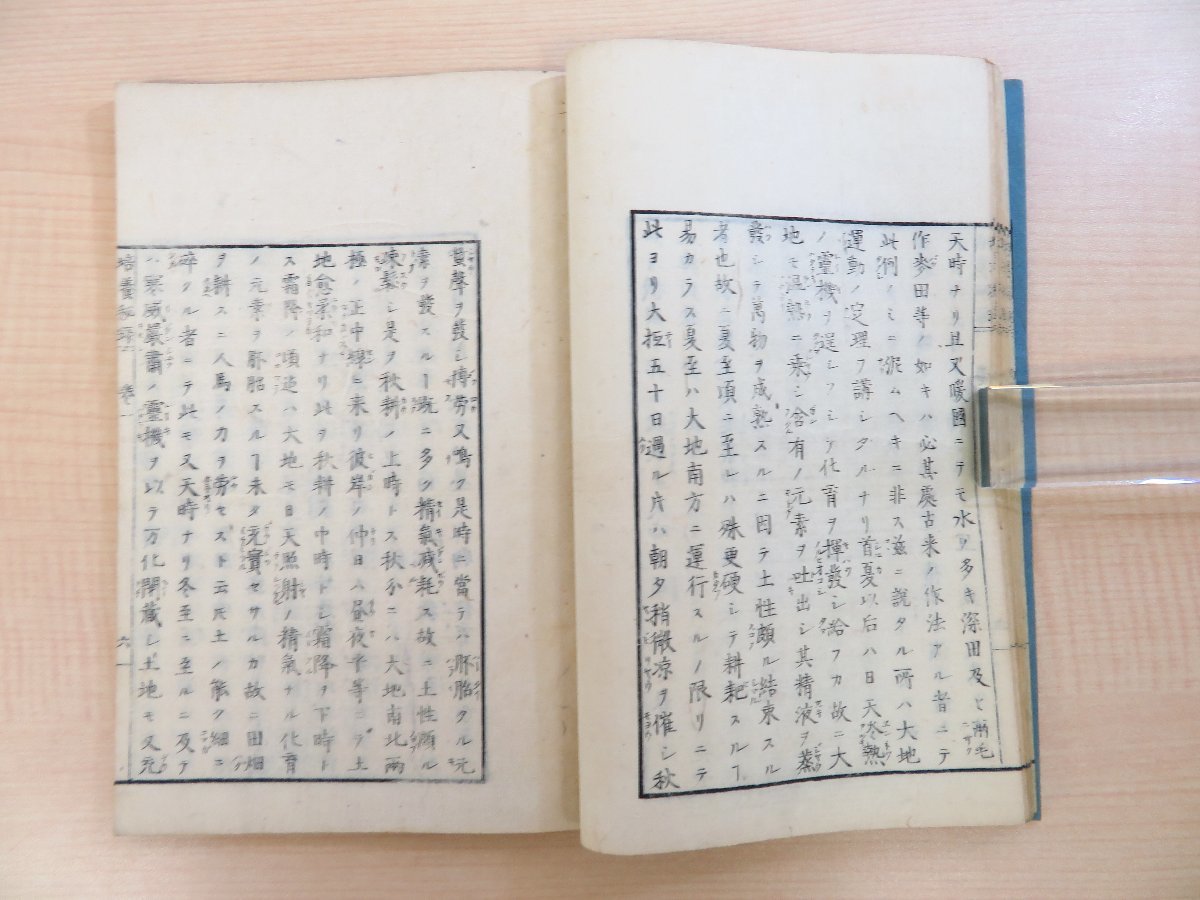 天時ナリ且又暖國ニテモ水ヲ多キ深田及ヒ両毛
作麥田等ノ如キハ必其處古来ノ作法アル者ニテ
此例ノミニ泥ムヘキニ非ス茲ニ説タル所ハ大地
運動ノ定理フ講シタルナリ首夏以后ハ日天冷熱
ノ靈機ヲ逞シフシテ化育ヲ揮發シ給フカ故ニ大
地モ温熱ニ乗シ含有ノ元素ヲ吐出シ其精液ヲ蒸
發シテ萬物ヲ成熟スルニ因テ土性頗ル結束スル
者也故ニ夏至頃ニ至レハ殊更硬シテ耕耙スルヿ
易カラス夏至ハ大地南方ニ運行スルノ限リニテ
此ヨリ大抵五十日過ル片ハ朝夕稍微凉ヲ催シ秋
聲ヲ發シ搏勞又鳴ク是時ニ當テハ胚胎タル元
素ヲ發スルー既ニ多ク精氣减耗ス故ニ土性頗ル
疎鬆シ是ヲ秋耕ノ上時トス秋分ニハ大地南北兩
極ノ正中ニ来リ彼岸ノ仲日ハ昼夜平等ニシテ土
地愈柔和ナリ此ヲ秋耕ノ中時トシ霜降ヲ下時ト
ス霜降ノ頃迄ハ大地モ日天照射ノ精氣ナル化育
ノ元素ヲ胚胎スルヿ未タ充實セサルカ故ニ田畑
ヲ耕スニ人馬ノ力ヲ勞セスト云𪜈土ノ能ク細ニ
碎クル者ニテ此モ又天時ナリ冬至ニ至ルニ及テ
ハ寒威嚴肅ノ靈機ヲ以テ万化閉藏シ土地モ又充
培養秘録 巻一 六